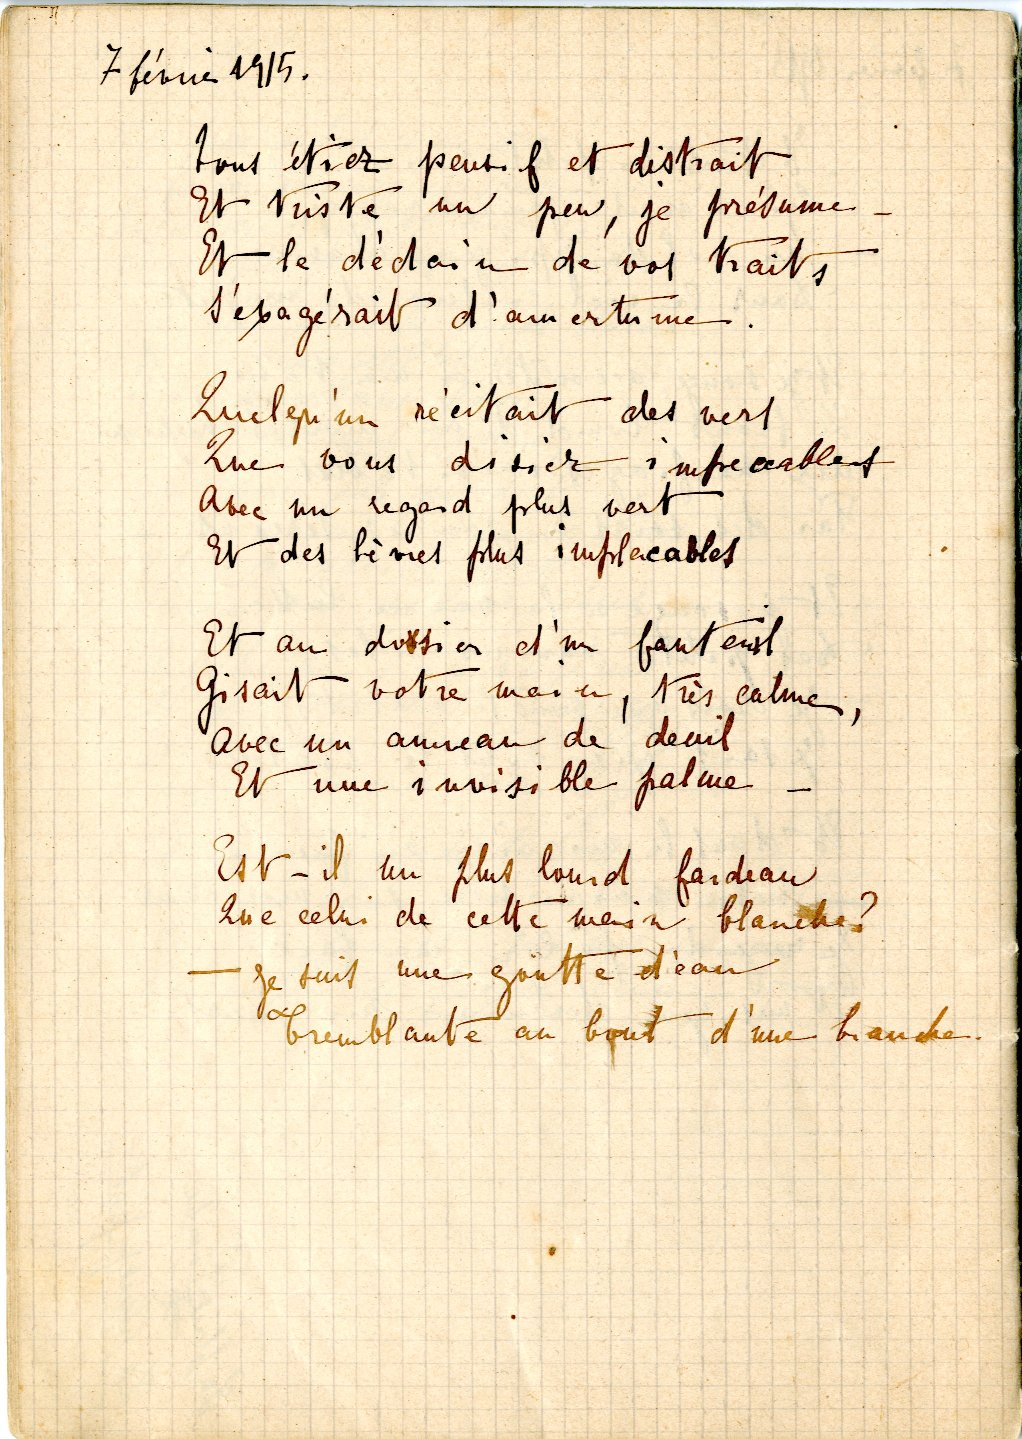 7 février 1915.
Vous étiez pensif et distrait
Et triste un peu, je présume –
Et le dédain de vos traits
S'exagérait d'amertume.
Quelqu'un récitait des vers
Que vous disiez impeccables
Avec un regard plus vert
Et des lèvres plus implacables
Et au dossier d'un fauteuil
Gisait votre main, très calme,
Avec un anneau de deuil
Et une invisible palme –
Est-il un plus lourd fardeau
Que celui de cette main blanche?
— Je suis une goutte d'eau
Tremblante au bout d'une branche.